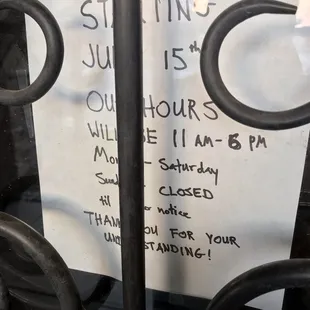 STARTING
JU 15th
OUR HOURS
WILL BE 11 AM - 6 PM
Mon - Saturday
Sun CLOSED
til notice
THANK YOU FOR YOUR
UNDERSTANDING!